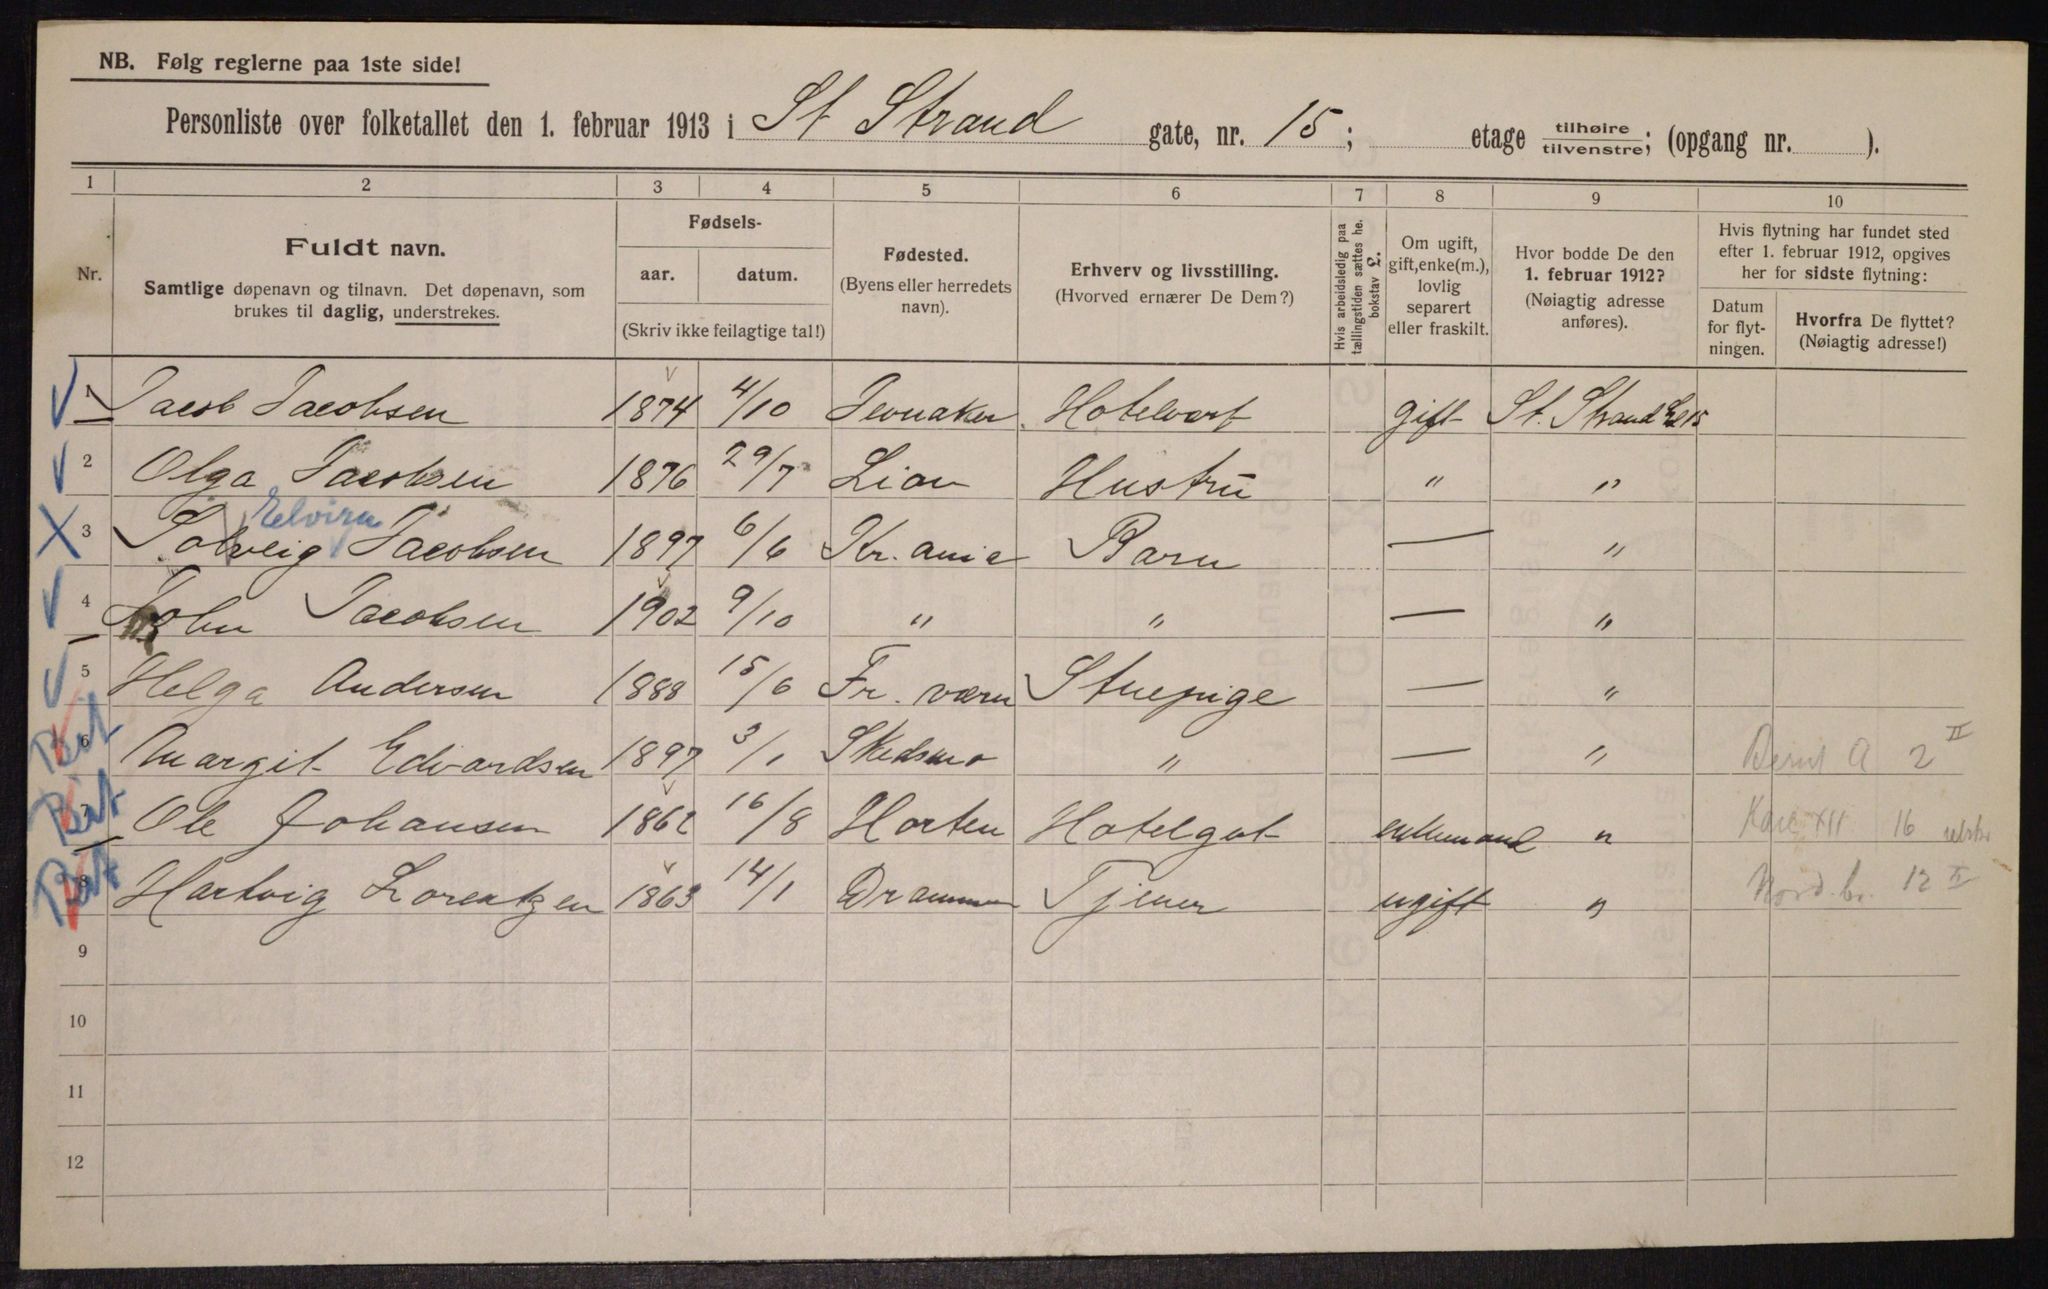 NB. Følg reglerne paa 1ste side!
Personliste over folketallet den 1. februar 1913 i St Strand gate, nr. 15; etage tilhøire/tilvenstre; (opgang nr. ).
1 2 3 4 5 6 7 8 9 10
Nr.
Fuldt navn.
Samtlige døpenavn og tilnavn. Det døpenavn, som
brukes til daglig, understrekes.
Fødsels-
aar. datum.
(Skriv ikke feilagtige tal!)
Fødested.
(Byens eller herredets
navn).
Erhverv og livsstilling.
(Hvorved ernærer De Dem?)
Hvis arbeidsledig paa
tællingstiden sættes he.
bokstav L.
Om ugift,
gift, enke(m.),
lovlig
separert
eller fraskilt.
Hvor bodde De den
1. februar 1912?
(Nøiagtig adresse
anføres).
Hvis flytning har fundet sted
efter 1. februar 1912, opgives
her for sidste flytning:
Datum
for flyt-
ningen.
Hvorfra De flyttet?
(Nøiagtig adresse!)
1 Jacob Jacobsen 1874 4/10 Jevnaker Hotelvert gift St. Strand 15
2 Olga Jacobsen 1876 29/7 Lian Hustru " "
Elvira
3 Solveig Jacobsen 1897 6/6 Kr.ania Barn — "
4 John Jacobsen 1902 9/10 " " — "
5 Helga Andersen 1888 15/6 Fr. værn Stuepige — "
6 Margit Edvardsen 1897 3/1 Skedsmo " — " Bernt A 2 II
7 Ole Johansen 1862 16/8 Horten Hotelgut enkemand " Karl XII 16
8 Hartvig Lorentzen 1863 14/1 Drammen Tjener ugift " Nord. br. 12 II
9
10
11
12